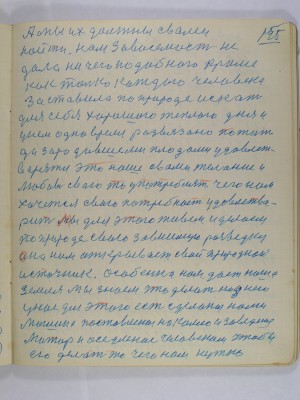 155
А мы их должны сваей
найти. Нам Зависемост не
дала ничего подобного кроме
как только каждого человека
Заставела по природе искат
для себя хорошого теплого дня и
цием одно время развязано потом
да зародившеми плодами удовлет
это наше свама желание и
Любови свого то употреблят чего нам
хочется свою потребност удовлетво
рит Мы для этого живем и делаем
по природе свою Зависемую разведку
она нам открывает свой природной
источник. Особенно нам дает наша
Земля Мы знаем это делат надо но
у нас для этого ест сделаны нами
Машины поставлены на колесо и Заведена
Матор и оседланае человеком чтобы
его делат то чего нам нужно